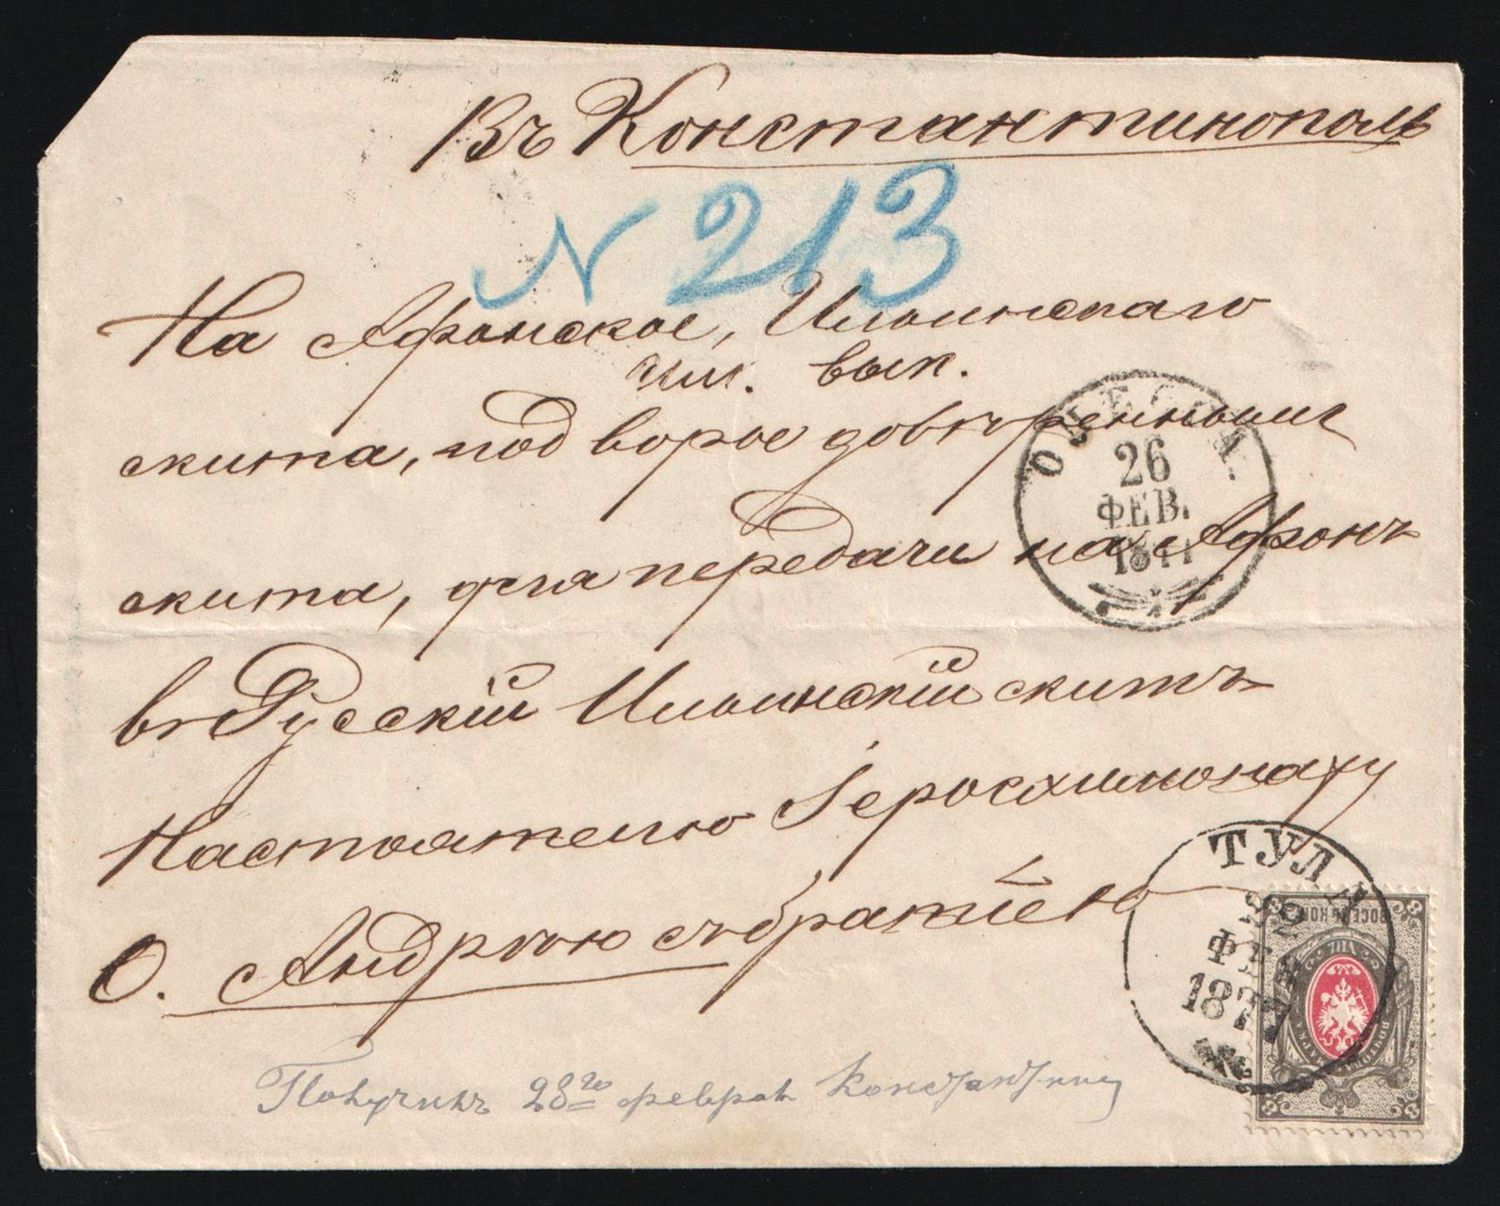 Въ Константинополь
N 213
На Афонское, Ильинскаго
скита, подворье довѣреннымъ
скита, для передачи на Афонъ
въ Русскій Ильинскій скитъ
Настоятелю Іеросхимонаху
О. Андрею съ братіею
ОДЕССА
26
ФЕВ.
1877
ТУЛА
ФЕВ
1877
Получилъ 28го февраля
ВОСЕМЬ КОП.
8
8
8
8